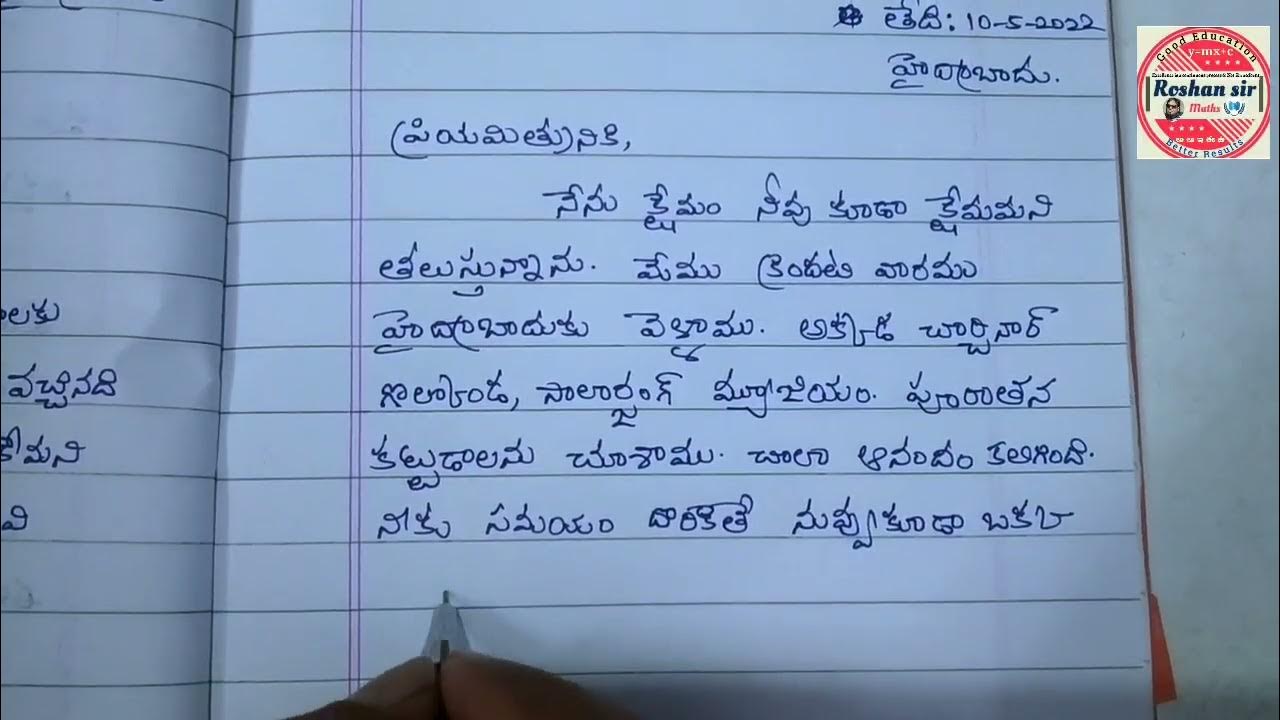 తేది: 10-5-2022
హైద్రాబాదు.
ప్రియమిత్రునికి,
నేను క్షేమం నీవు కూడా క్షేమమని
తలుస్తున్నాను. మేము క్రిందటి వారము
హైద్రాబాదుకు వెళ్ళాము. అక్కడ చార్మినార్
గొల్కొండ, సాలార్జంగ్ మ్యూజియం. పూరాతన
కట్టడాలను చూశాము. చాలా ఆనందం కలిగింది.
నీకు సమయం దొరికితే నువ్వుకూడా ఒకసా
లకు
వచ్చినది
మని
వి
Good Education
y=mx+c
Roshan sir
Maths
Better Results